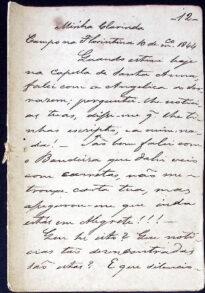 12
Minha Clarinda
Campo na Florentina 10 de 1844
Quando estive hoje
na capella de Santa Anna,
falei com a Angelica e de
narem, perguntei-lhe noticias
tuas, disse-me q̃ lhe ti
nhas escripto, e a mim na
da! — Tão bem falei com
o Bandeira que d'ahi veio
com carretas, não me
trouxe carta tua, mas
que inda
estás em Alegrete!!! —
Que he isto? Que noti
cias tão desencontradas
são estas? E que silencio